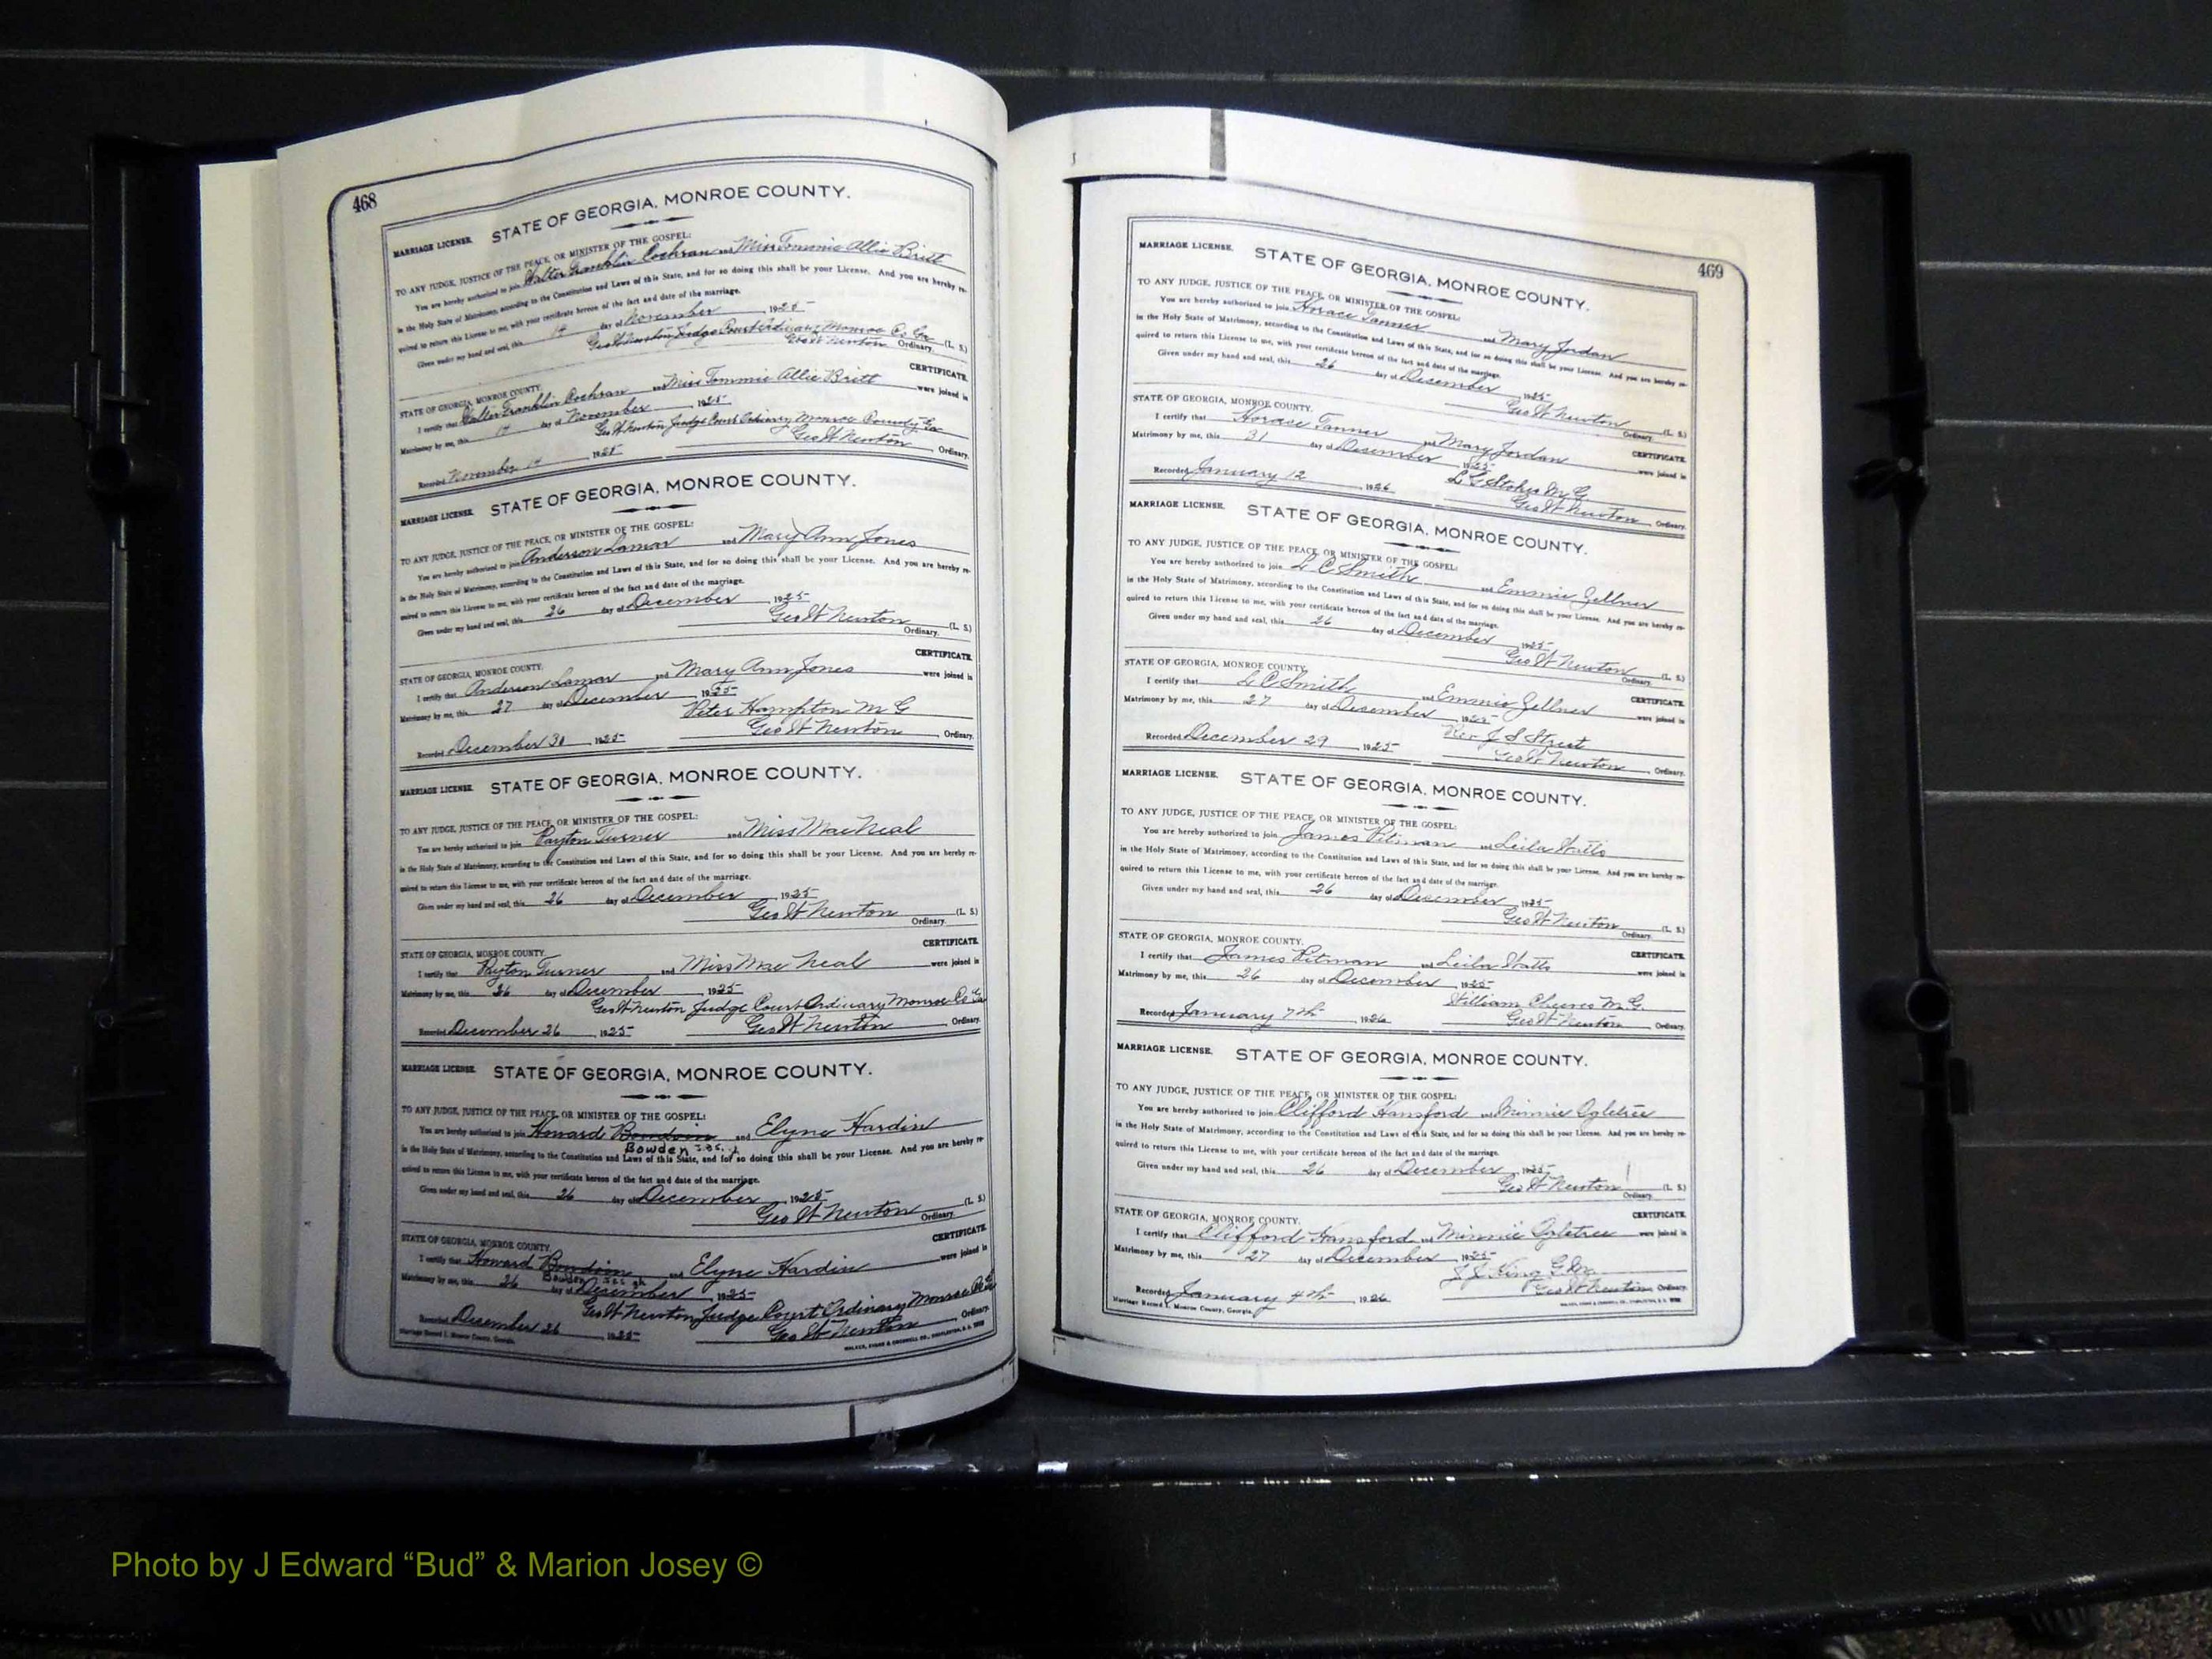 468
STATE OF GEORGIA, MONROE COUNTY.
MARRIAGE LICENSE.
TO ANY JUDGE, JUSTICE OF THE PEACE, OR MINISTER OF THE GOSPEL:
You are hereby authorized to join Walter Franklin Cochran and Miss Tommie Allie Britt
in the Holy State of Matrimony, according to the Constitution and Laws of this State, and for so doing this shall be your License. And you are hereby re-
quired to return this License to me, with your certificate hereon of the fact and date of the marriage.
Given under my hand and seal, this 14 day of November, 1925
Geo W Newton Judge Court Ordinary Monroe Co Ga
Geo W Newton Ordinary. (L. S.)
CERTIFICATE.
STATE OF GEORGIA, MONROE COUNTY.
I certify that Walter Franklin Cochran and Miss Tommie Allie Britt were joined in
Matrimony by me, this 14 day of November, 1925
Geo W Newton Judge Court Ordinary Monroe County Ga
Recorded November 14, 1925 Geo W Newton, Ordinary.
MARRIAGE LICENSE. STATE OF GEORGIA, MONROE COUNTY.
TO ANY JUDGE, JUSTICE OF THE PEACE, OR MINISTER OF THE GOSPEL:
You are hereby authorized to join Anderson Lamar and Mary Ann Jones
in the Holy State of Matrimony, according to the Constitution and Laws of this State, and for so doing this shall be your License. And you are hereby re-
quired to return this License to me, with your certificate hereon of the fact and date of the marriage.
Given under my hand and seal, this 26 day of December, 1925
Geo W Newton (L. S.)
Ordinary.
CERTIFICATE.
STATE OF GEORGIA, MONROE COUNTY.
I certify that Anderson Lamar and Mary Ann Jones were joined in
Matrimony by me, this 27 day of December, 1925
Peter Hampton M G
Recorded December 30, 1925 Geo W Newton, Ordinary.
MARRIAGE LICENSE. STATE OF GEORGIA, MONROE COUNTY.
TO ANY JUDGE, JUSTICE OF THE PEACE, OR MINISTER OF THE GOSPEL:
You are hereby authorized to join Payton Turner and Miss Mae Neal
in the Holy State of Matrimony, according to the Constitution and Laws of this State, and for so doing this shall be your License. And you are hereby re-
quired to return this License to me, with your certificate hereon of the fact and date of the marriage.
Given under my hand and seal, this 26 day of December, 1925
Geo W Newton (L. S.)
Ordinary.
CERTIFICATE.
STATE OF GEORGIA, MONROE COUNTY.
I certify that Payton Turner and Miss Mae Neal were joined in
Matrimony by me, this 26 day of December, 1925
Geo W Newton Judge Court Ordinary Monroe Co Ga
Recorded December 26, 1925 Geo W Newton, Ordinary.
MARRIAGE LICENSE. STATE OF GEORGIA, MONROE COUNTY.
TO ANY JUDGE, JUSTICE OF THE PEACE, OR MINISTER OF THE GOSPEL:
You are hereby authorized to join Howard Bowdoin and Elyne Hardin
Bowden
in the Holy State of Matrimony, according to the Constitution and Laws of this State, and for so doing this shall be your License. And you are hereby re-
quired to return this License to me, with your certificate hereon of the fact and date of the marriage.
Given under my hand and seal, this 26 day of December, 1925
Geo W Newton (L. S.)
Ordinary.
CERTIFICATE.
STATE OF GEORGIA, MONROE COUNTY.
I certify that Howard Bowdoin and Elyne Hardin were joined in
Bowden
Matrimony by me, this 26 day of December, 1925
Geo W Newton Judge Court Ordinary Monroe Co Ga
Recorded December 26, 1925 Geo W Newton, Ordinary.
Marriage Record I, Monroe County, Georgia.
WALKER, EVANS & COGSWELL CO., CHARLESTON, S. C.
469
MARRIAGE LICENSE. STATE OF GEORGIA, MONROE COUNTY.
TO ANY JUDGE, JUSTICE OF THE PEACE, OR MINISTER OF THE GOSPEL:
You are hereby authorized to join Horace Tanner and Mary Jordan
in the Holy State of Matrimony, according to the Constitution and Laws of this State, and for so doing this shall be your License. And you are hereby re-
quired to return this License to me, with your certificate hereon of the fact and date of the marriage.
Given under my hand and seal, this 26 day of December, 1925
Geo W Newton (L. S.)
Ordinary.
STATE OF GEORGIA, MONROE COUNTY. CERTIFICATE.
I certify that Horace Tanner and Mary Jordan were joined in
Matrimony by me, this 31 day of December, 1925
L G Stokes M G
Recorded January 12, 1926 Geo W Newton, Ordinary.
MARRIAGE LICENSE. STATE OF GEORGIA, MONROE COUNTY.
TO ANY JUDGE, JUSTICE OF THE PEACE, OR MINISTER OF THE GOSPEL:
You are hereby authorized to join L C Smith and Emmie Zellner
in the Holy State of Matrimony, according to the Constitution and Laws of this State, and for so doing this shall be your License. And you are hereby re-
quired to return this License to me, with your certificate hereon of the fact and date of the marriage.
Given under my hand and seal, this 26 day of December, 1925
Geo W Newton (L. S.)
Ordinary.
STATE OF GEORGIA, MONROE COUNTY. CERTIFICATE.
I certify that L C Smith and Emmie Zellner were joined in
Matrimony by me, this 27 day of December, 1925
Rev J S Street
Recorded December 29, 1925 Geo W Newton, Ordinary.
MARRIAGE LICENSE. STATE OF GEORGIA, MONROE COUNTY.
TO ANY JUDGE, JUSTICE OF THE PEACE, OR MINISTER OF THE GOSPEL:
You are hereby authorized to join James Pitman and Leila Watts
in the Holy State of Matrimony, according to the Constitution and Laws of this State, and for so doing this shall be your License. And you are hereby re-
quired to return this License to me, with your certificate hereon of the fact and date of the marriage.
Given under my hand and seal, this 26 day of December, 1925
Geo W Newton (L. S.)
Ordinary.
STATE OF GEORGIA, MONROE COUNTY. CERTIFICATE.
I certify that James Pitman and Leila Watts were joined in
Matrimony by me, this 26 day of December, 1925
William Cheeves M. G.
Recorded January 7th, 1926 Geo W Newton, Ordinary.
MARRIAGE LICENSE. STATE OF GEORGIA, MONROE COUNTY.
TO ANY JUDGE, JUSTICE OF THE PEACE, OR MINISTER OF THE GOSPEL:
You are hereby authorized to join Clifford Hansford and Minnie Ogletree
in the Holy State of Matrimony, according to the Constitution and Laws of this State, and for so doing this shall be your License. And you are hereby re-
quired to return this License to me, with your certificate hereon of the fact and date of the marriage.
Given under my hand and seal, this 26 day of December, 1925
Geo W Newton (L. S.)
Ordinary.
STATE OF GEORGIA, MONROE COUNTY. CERTIFICATE.
I certify that Clifford Hansford and Minnie Ogletree were joined in
Matrimony by me, this 27 day of December, 1925
J J King G M
Recorded January 4th, 1926 Geo W Newton Ordinary.
Marriage Record I, Monroe County, Georgia.
WALKER, EVANS & COGSWELL CO., CHARLESTON, S. C.
Photo by J Edward “Bud” & Marion Josey ©